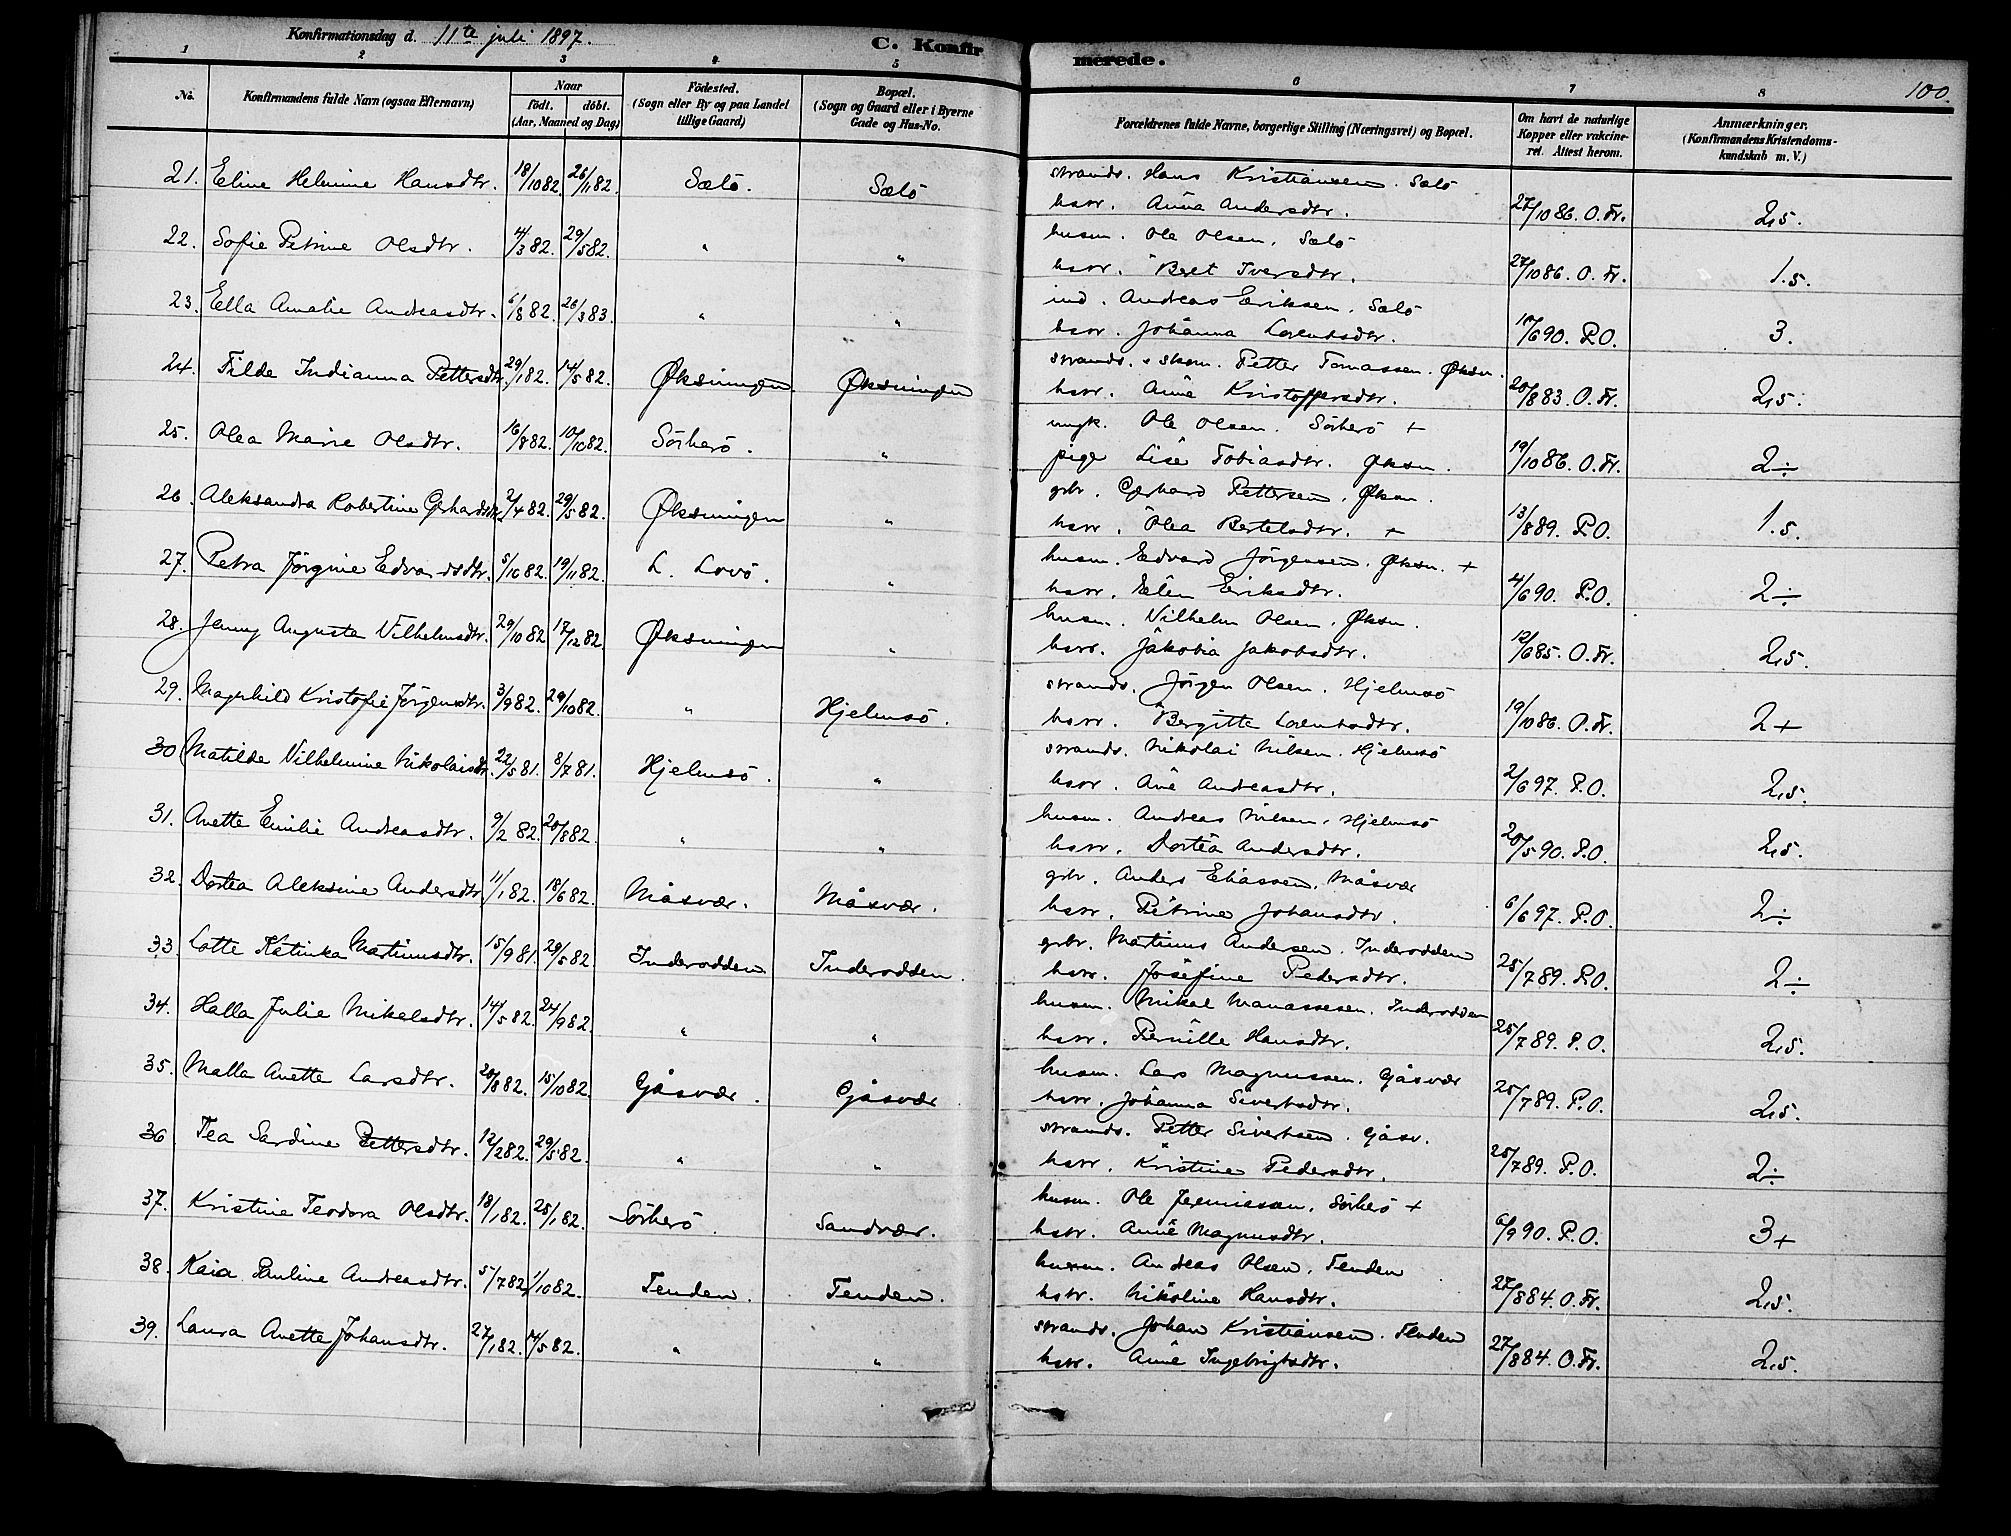 Konfirmationsdag d. 11te juli 1897.
C. Konfirmerede.
100.
1 2 3 4 5 6 7 8
No.
Konfirmandens fulde Navn (ogsaa Efternavn)
Naar
födt. döbt.
(Aar, Maaned og Dag)
Födested.
(Sogn eller By og paa Landet
tillige Gaard)
Bopæl.
(Sogn og Gaard eller i Byerne
Gade og Hus-No.
Forældrenes fulde Navne, borgerlige Stilling (Næringsvei) og Bopæl.
Om havt de naturlige
Kopper eller vakcine-
ret. Attest herom.
Anmærkninger.
(Konfirmandens Kristendoms-
kundskab m. V.)
21. Eline Helmine Hansdtr. 18/10 82. 26/11 82. Sælö. Sælö strands. Hans Kristiansen. Sælö
hstr. Anna Andersdtr. 27/10 86. O. Fr. 2,5.
22. Sofie Petrine Olsdtr. 4/3 82. 29/5 82. " " husm. Ole Olsen, Sælö
hstr. Beret Iversdtr. 27/10 86. O. Fr. 1.5.
23. Ella Amalie Andreasdtr. 6/8 82. 26/3 83. " " ind. Andreas Eriksen. Sælö
hstr. Johanna Lorentsdtr. 17/6 90. P.O. 3.
24. Tilde Indianna Pettersdtr. 29/1 82. 14/5 82. Øksningen Øksningen strands. & skom. Petter Tomassen. Øksn.
hstr. Ane Kristoffersdtr. 20/8 83. O. Fr. 2,5.
25. Olea Marie Olsdtr. 16/8 82. 10/10 82. Sörherö. " ungk. Ole Olsen. Sörherö +
pige Lise Tobiasdtr. Øksn. 19/10 86. O. Fr. 2÷
26. Aleksandra Robertine Gerhardsdtr. 2/4 82. 29/5 82. Øksningen " gbr. Gerhard Pettersen, Øksn.
hstr. Olea Bertelsdtr. + 13/8 89. P.O. 1.5.
27. Petra Jörgine Edvardsdtr. 5/10 82. 19/11 82. L. Lovö. " husm. Edvard Jörgensen. Øksn. +
hstr. Elen Eriksdtr. 4/6 90. P.O. 2÷
28. Jenny Augusta Vilhelmsdtr. 29/10 82 17/12 82. Øksningen " husm. Vilhelm Olsen, Øksn.
hstr. Jakobia Jakobsdtr. 12/6 85. O. Fr. 2,5.
29. Magnhild Kristofie Jörgensdtr. 3/9 82. 29/10 82. " Hjelmsö. strands. Jörgen Olsen. Hjelmsö
hstr. Bergitte Lorentsdtr. 19/10 86. O. Fr. 2+
30 Matilde Vilhelmine Nikolaisdtr. 22/5 81. 8/7 81. Hjelmsö. " strands. Nikolai Nilsen. Hjelmsö
hstr. Ane Andreasdtr. 2/6 97. P.O. 2,5.
31. Anette Emilie Andreasdtr. 9/2 82. 20/8 82. " " husm. Andreas Nilsen, Hjelmsö
hstr. Dortea Andersdtr. 20/5 90. P.O. 2,5.
32. Dortea Aleksine Andersdtr. 11/1 82. 18/6 82. Måsvær. Måsvær. gbr. Anders Eliassen, Måsvær
hstr. Petrine Johansdtr. 6/6 97. P.O. 2÷
33. Lotte Katinka Martinusdtr. 15/9 81. 29/5 82. Inderodden Inderodden. gbr. Martinus Andersen. Inderodden
hstr. Josefine Pedersdtr. 25/7 89. P.O. 2÷
34. Halla Julie Mikelsdtr. 14/5 82. 24/9 82. " " husm. Mikal Manassesen. Inderodden
hstr. Pernille Hansdtr. 25/7 89. P.O. 2,5.
35. Malla Anette Larsdtr. 20/8 82. 15/10 82. Gåsvær. Gåsvær husm. Lars Magnussen. Gåsvær
hstr. Johanna Sivertsdtr. 25/7 89. P.O. 2,5.
36 Tea Sardine Pettersdtr. 12/2 82. 29/5 82. " " strands. Petter Sivertsen. Gåsv.
hstr. Kristine Pedersdtr. 25/7 89. P.O. 2÷
37. Kristine Teodora Olsdtr. 18/1 82. 25/1 82. Sörherö. Sandvær. husm. Ole Jeremiesen, Sörherö +
hstr. Ane Magnusdtr. 6/9 90. P.O. 3+
38. Kaia Pauline Andreasdtr. 5/7 82. 1/10 82. Tenden. Tenden. husm. Andreas Olsen. Tenden
hstr. Nikoline Hansdtr. 27/8 84. O. Fr. 2,5.
39. Laura Anette Johansdtr. 27/1 82. 14/5 82. " " strands. Johan Kristiansen. Tenden
hstr. Ane Ingebrigtsdtr. 27/8 84. O. Fr. 2,5.